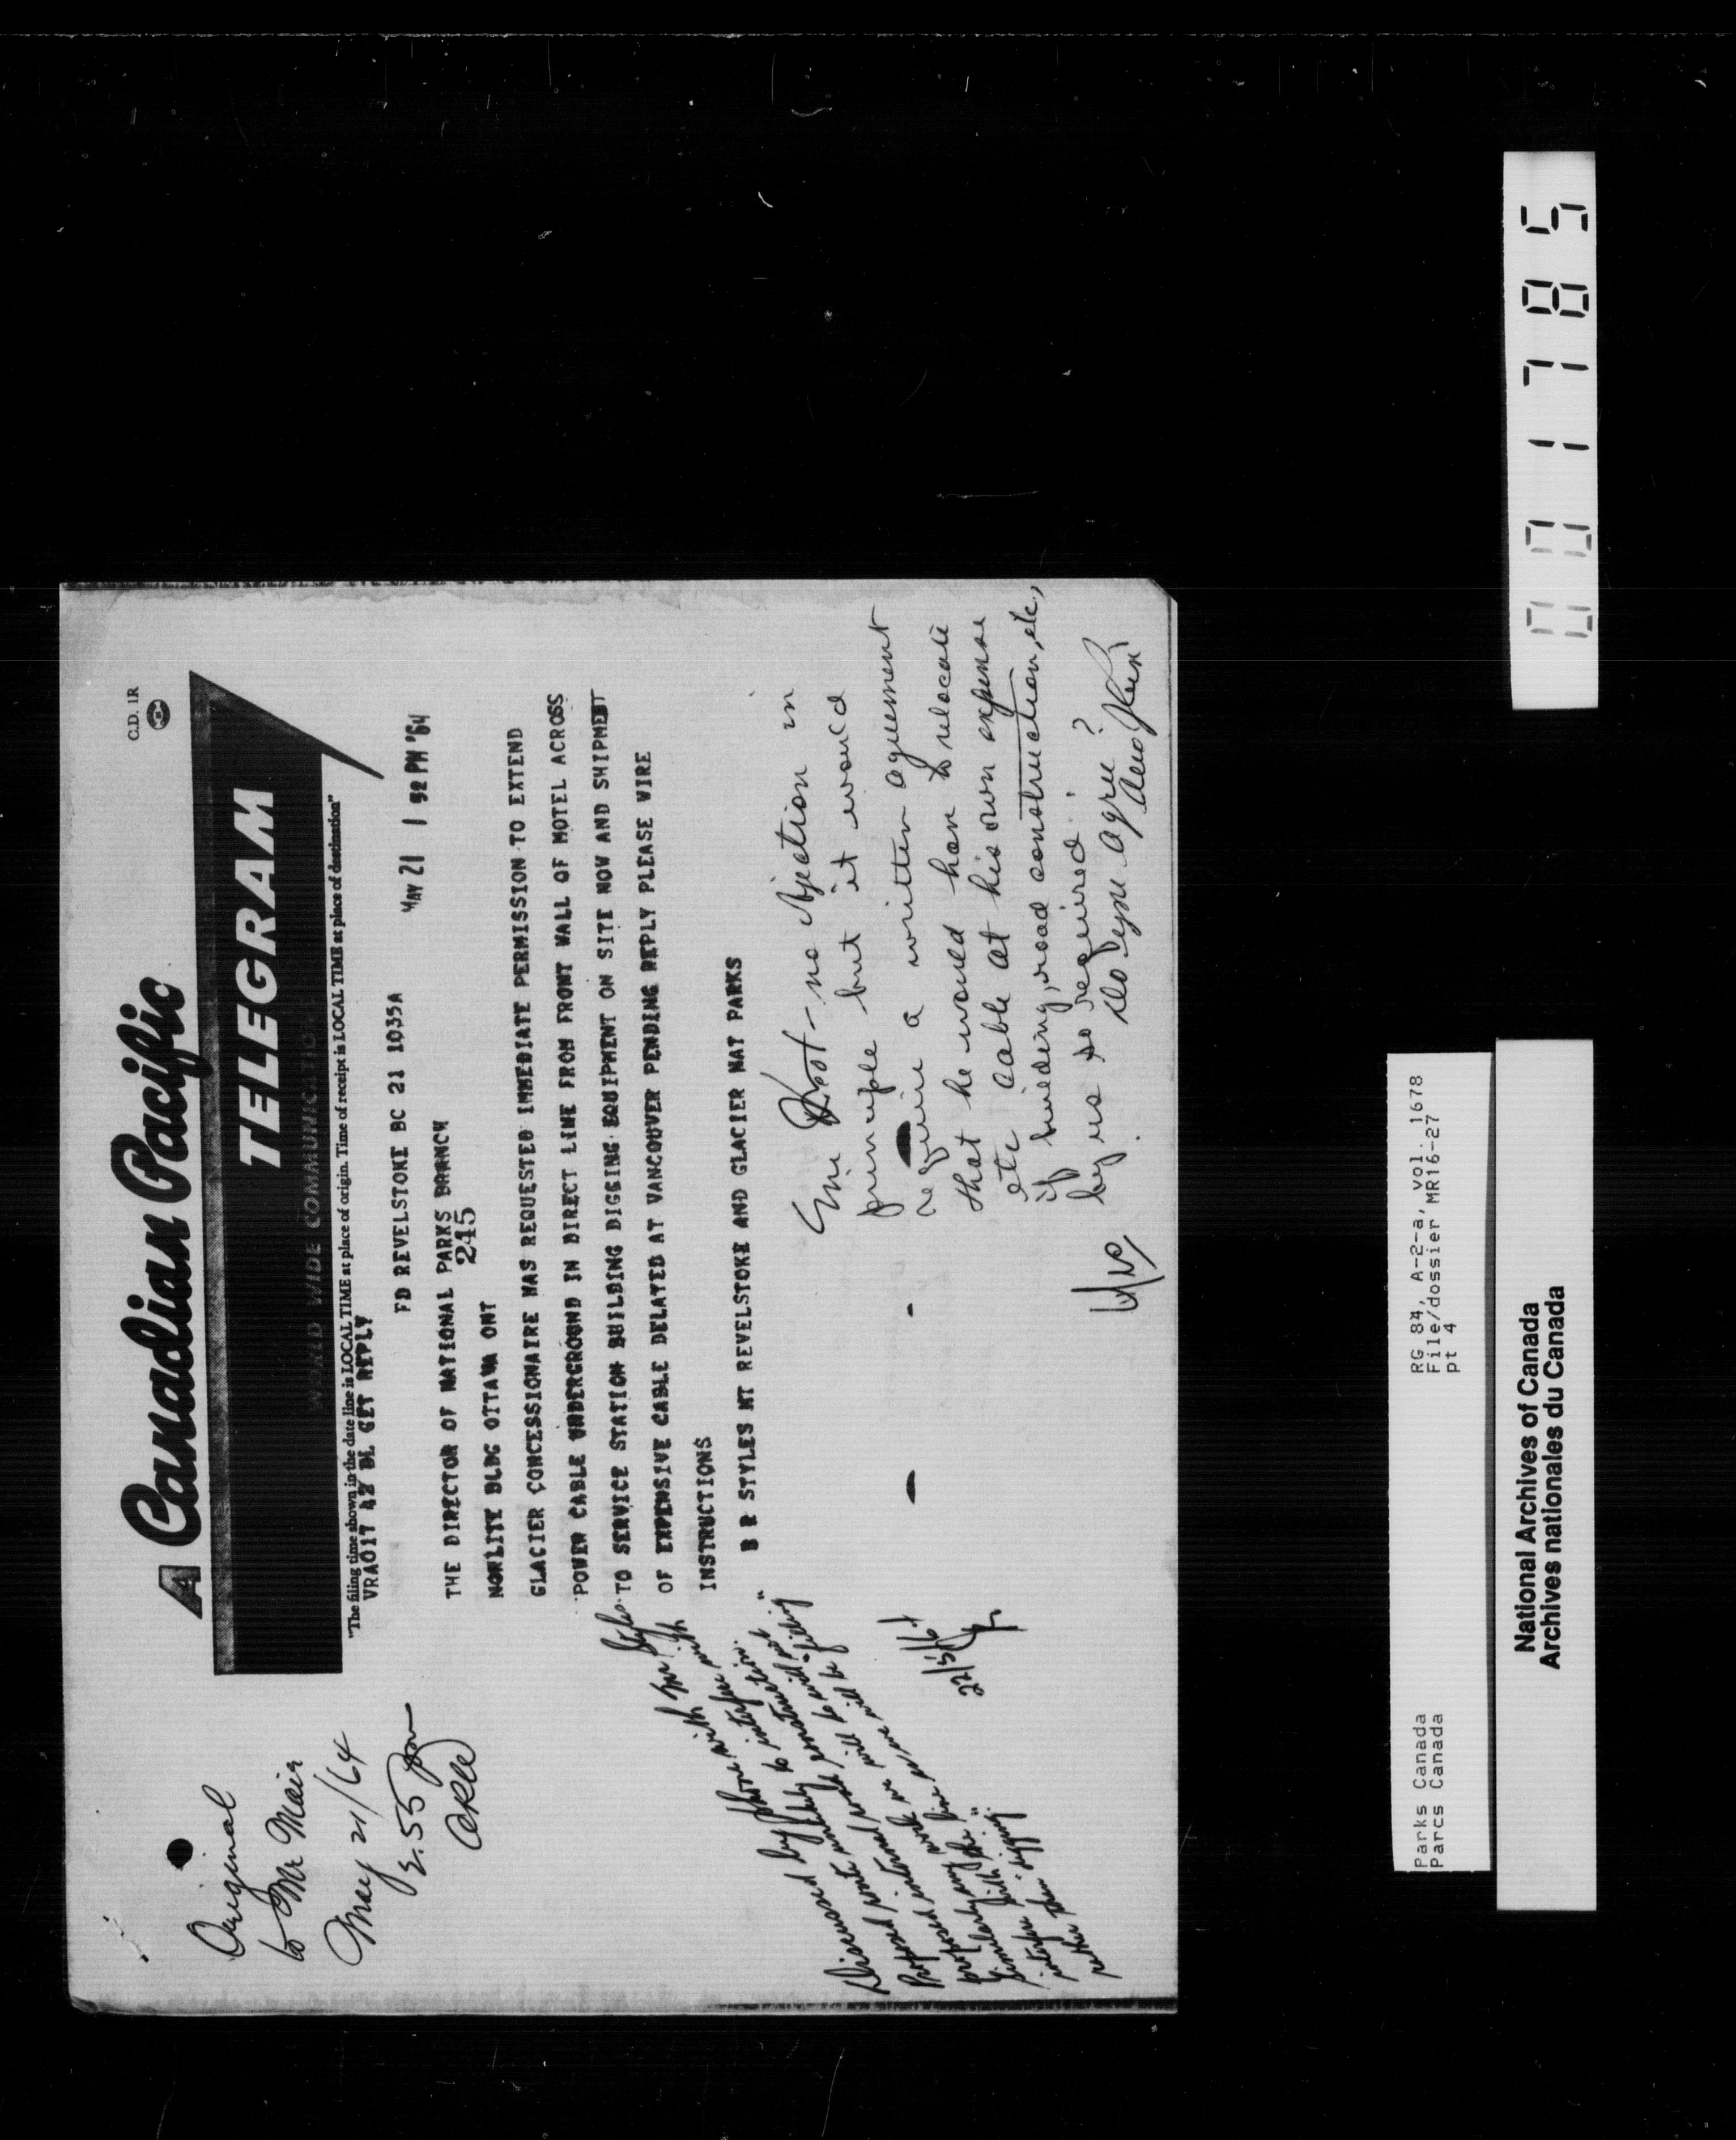 C.D. 1R
A Canadian Pacific
TELEGRAM
WORLD WIDE COMMUNICATIONS
"The filing time shown in the date line is LOCAL TIME at place of origin. Time of receipt is LOCAL TIME at place of destination"
VRA017 42 DL GET REPLY
MAY 21 1 52 PM '64
FD REVELSTOKE BC 21 1035A
THE DIRECTOR OF NATIONAL PARKS BRANCH
245
NORLITE BLDG OTTAWA ONT
GLACIER CONCESSIONAIRE HAS REQUESTED IMMEDIATE PERMISSION TO EXTEND
POWER CABLE UNDERGROUND IN DIRECT LINE FROM FRONT WALL OF MOTEL ACROSS
TO SERVICE STATION BUILDING DIGGING EQUIPMENT ON SITE NOW AND SHIPMENT
OF EXPENSIVE CABLE DELAYED AT VANCOUVER PENDING REPLY PLEASE WIRE
INSTRUCTIONS
B R STYLES MT REVELSTOKE AND GLACIER NAT PARKS
Original
to Mr Mair
May 21/64
2.55 pm
no objection in
principle but it would
require a written agreement
that he would have to relocate
etc cable at his own expense
if building, road construction, etc,
by us so required.
Do you agree?
Yes
Discussed by phone with Mr Styles.
Proposed
proposed
Similarly any
interfere with
rather than digging.
22/5/64
0 0 1 7 8 5
Parks Canada RG 84, A-2-a, vol. 1678
Parcs Canada File/dossier MR16-27
pt 4
National Archives of Canada
Archives nationales du Canada